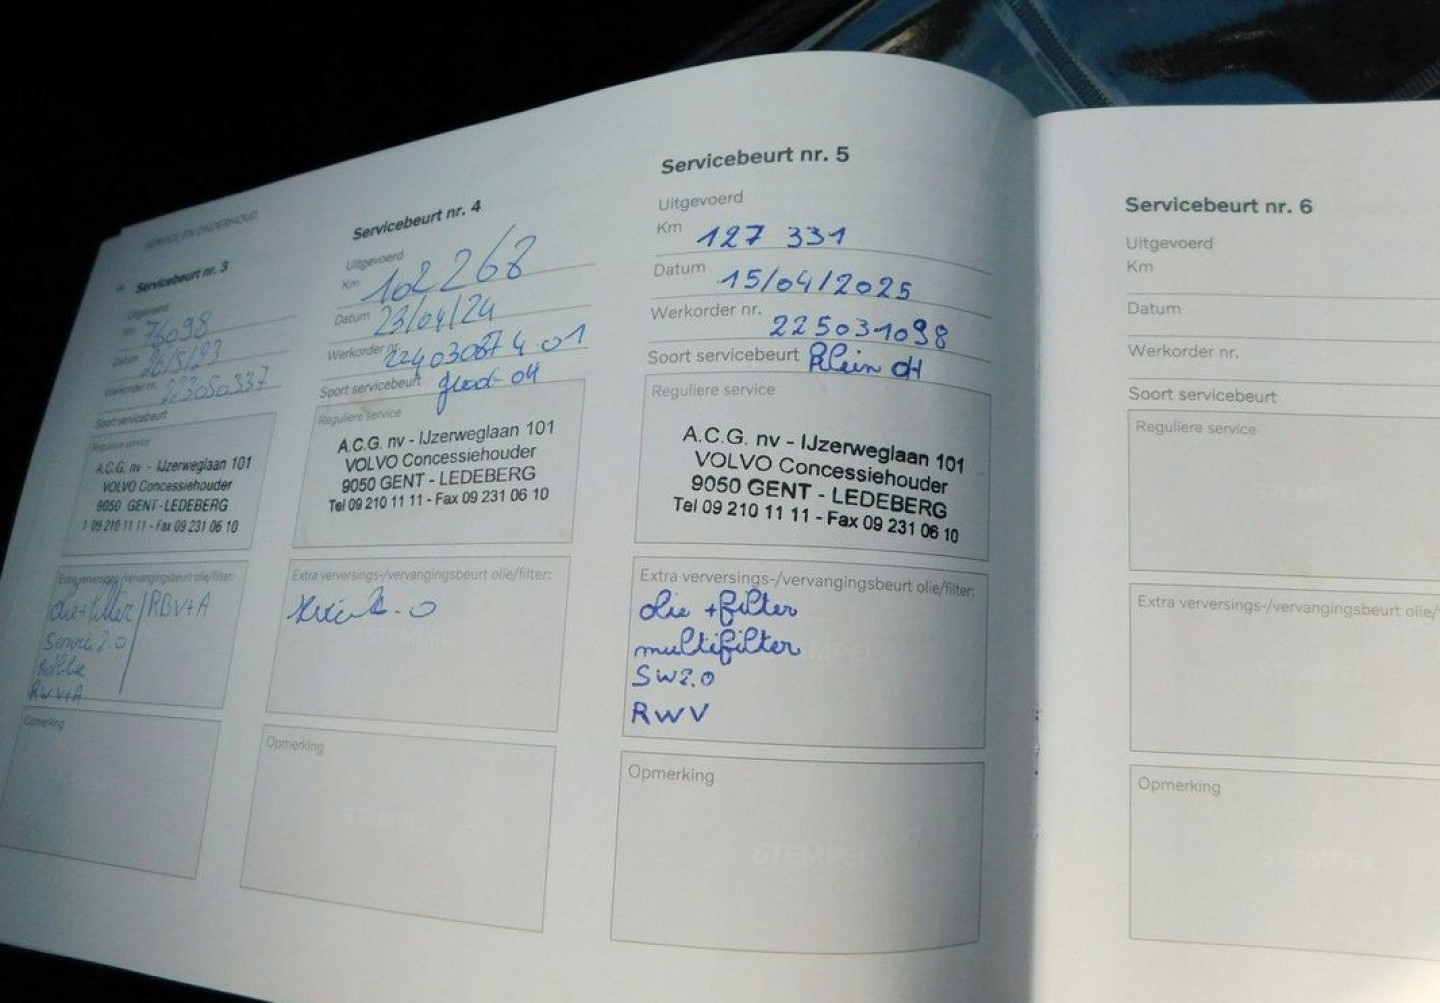 SERVICE EN ONDERHOUD
Servicebeurt nr. 3
Uitgevoerd
Km 76098
Datum 26/5/23
Werkorder nr. 223050337
Soort servicebeurt
Reguliere service
A.C.G. nv - IJzerweglaan 101
VOLVO Concessiehouder
9050 GENT-LEDEBERG
09 210 11 11 - Fax 09 231 06 10
Extra verversings-/vervangingsbeurt olie/filter:
olie+filter / RBV+A
Service 2.0
RWV+A
Opmerking
Servicebeurt nr. 4
Uitgevoerd
Km 102268
Datum 23/04/24
Werkorder nr.
Soort servicebeurt
Reguliere service
A.C.G. nv - IJzerweglaan 101
VOLVO Concessiehouder
9050 GENT - LEDEBERG
Tel 09 210 11 11 - Fax 09 231 06 10
Extra verversings-/vervangingsbeurt olie/filter:
Opmerking
Servicebeurt nr. 5
Uitgevoerd
Km 127 331
Datum 15/04/2025
Werkorder nr. 225031098
Soort servicebeurt Klein OH
Reguliere service
A.C.G. nv - IJzerweglaan 101
VOLVO Concessiehouder
9050 GENT - LEDEBERG
Tel 09 210 11 11 - Fax 09 231 06 10
Extra verversings-/vervangingsbeurt olie/filter:
olie +filter
multifilter
SW2.0
RWV
Opmerking
STEMPEL
Servicebeurt nr. 6
Uitgevoerd
Km
Datum
Werkorder nr.
Soort servicebeurt
Reguliere service
Extra verversings-/vervangingsbeurt olie/
Opmerking
STEMPEL